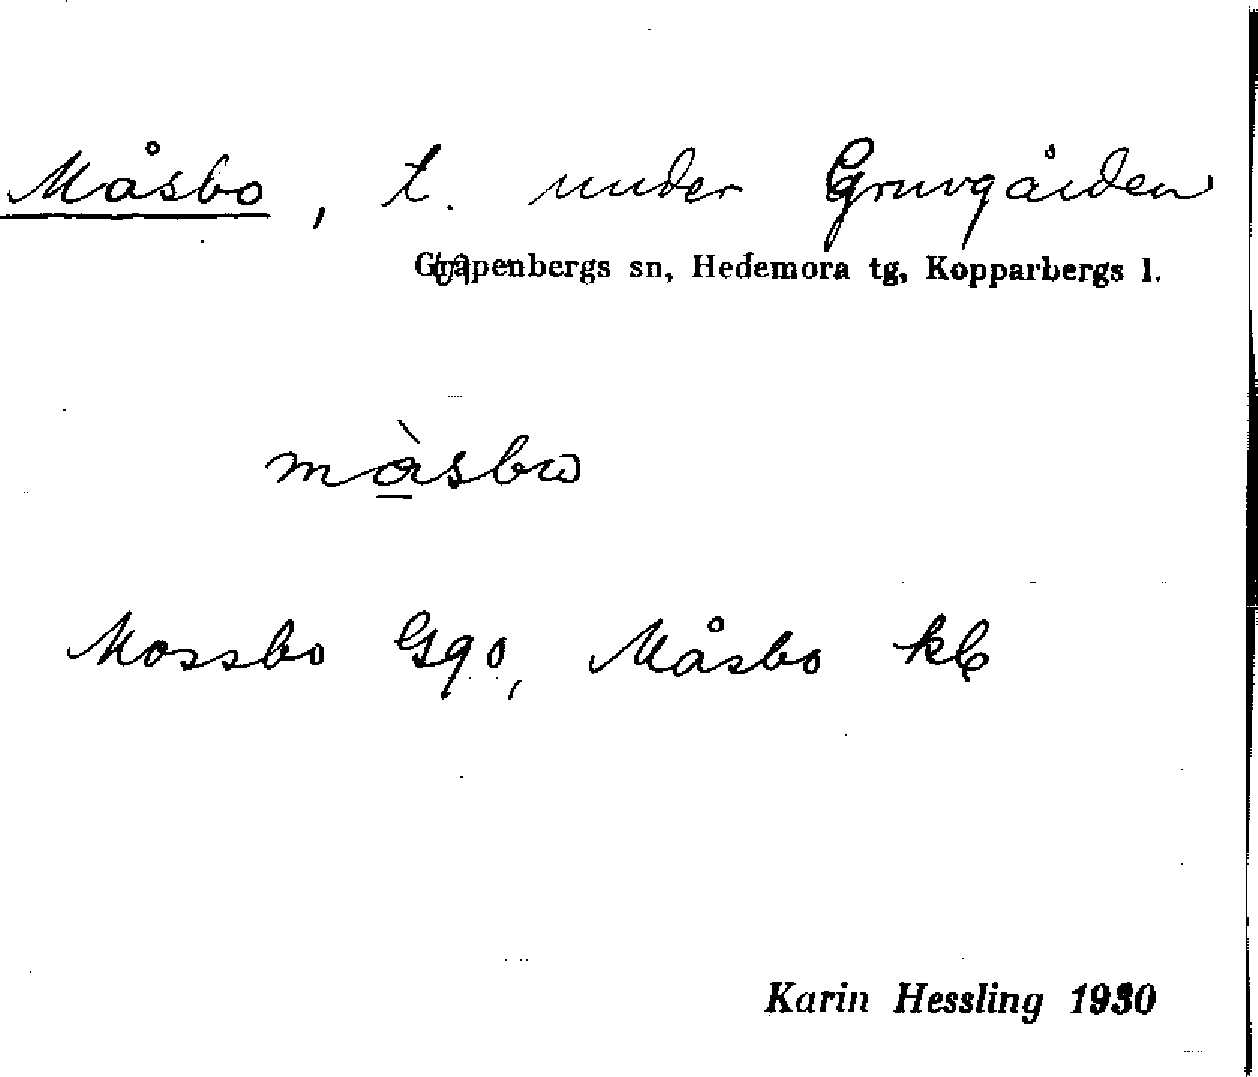 Måsbo, t. under Gruvgården
Garpenbergs sn, Hedemora tg, Kopparbergs l.
màsbω
Mossbo Gqo, Måsbo kb
Karin Hessling 1930